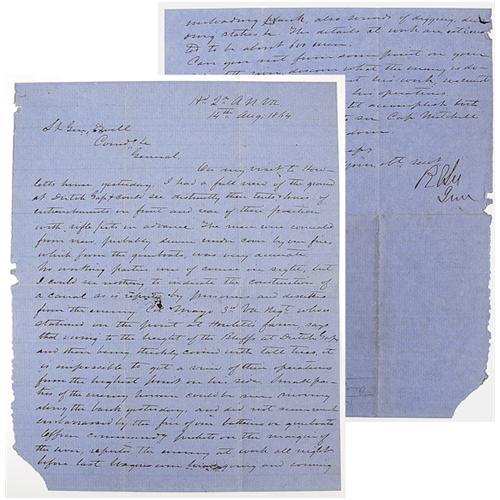 Hd Qrs A N Va
14th Aug. 1864
Lt Gen, Ewell
Comd &c
General,
On my visit to How-
letts house yesterday, I had a full view of the ground
at Dutch Gap & could see distinctly their tents, lines of
entrenchments in front and rear of their position
with rifle pits in advance. The men were concealed
from view, probably driven under cover by our fire,
which from the gunboats, was very accurate
No working parties were of course in sight, but
I could see nothing to indicate the construction of
a canal as is reported by prisoners and deserters
from the enemy. Mayo 3rd Va Regt. who is
stationed on the point at Howletts farm, says
that owing to the height of the Bluffs at Dutch Gap
and their being thickly covered with tall trees, it
is impossible to get a view of their operations
from the highest point on his side. Small par-
ties of the enemy however could be seen moving
along the bank yesterday, and did not seem much
embarrassed by the fire of our batteries or gunboats
Officer commanding pickets on the margin of
the river, reports the enemy at work all night
before last. Wagons were going and coming
unloading plank, also sounds of digging, dri-
ving stakes &c. The details at work are estima-
ted to be about 600 men.
Can you not from some point on your
discover what the enemy is do-
at his work
his operations
accomplish both
to Cap Mitchell
your obt. servt
R E Lee
Genl